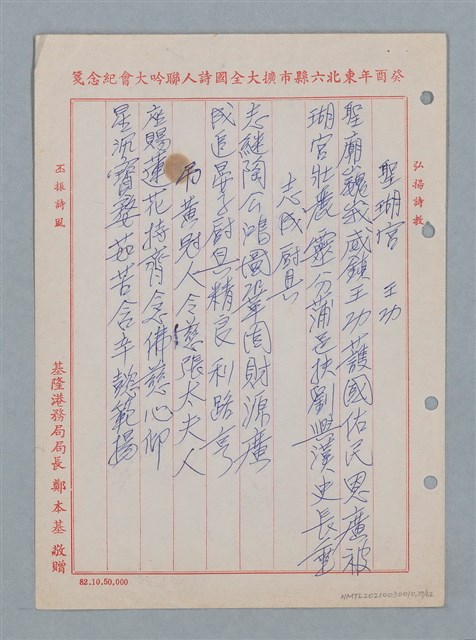 癸酉年東北六縣市擴大全國詩人聯吟大會紀念箋
弘揚詩教
聖瑚宮 王功
聖廟巍峩威鎮王功護國佑民恩廣被
瑚宮壯麗靈分蒲邑扶劉興漢史長垂
志成厨具
志繼陶公鴻圖鞏固財源廣
成追晏子厨具精良利路亨
吊黃慰人令慈張太夫人
座賜蓮花持齊念佛慈心仰
星沉寶婺茹苦含辛懿範揚
丕振詩風
基隆港務局局長 鄭本基 敬贈
82.10.50,000